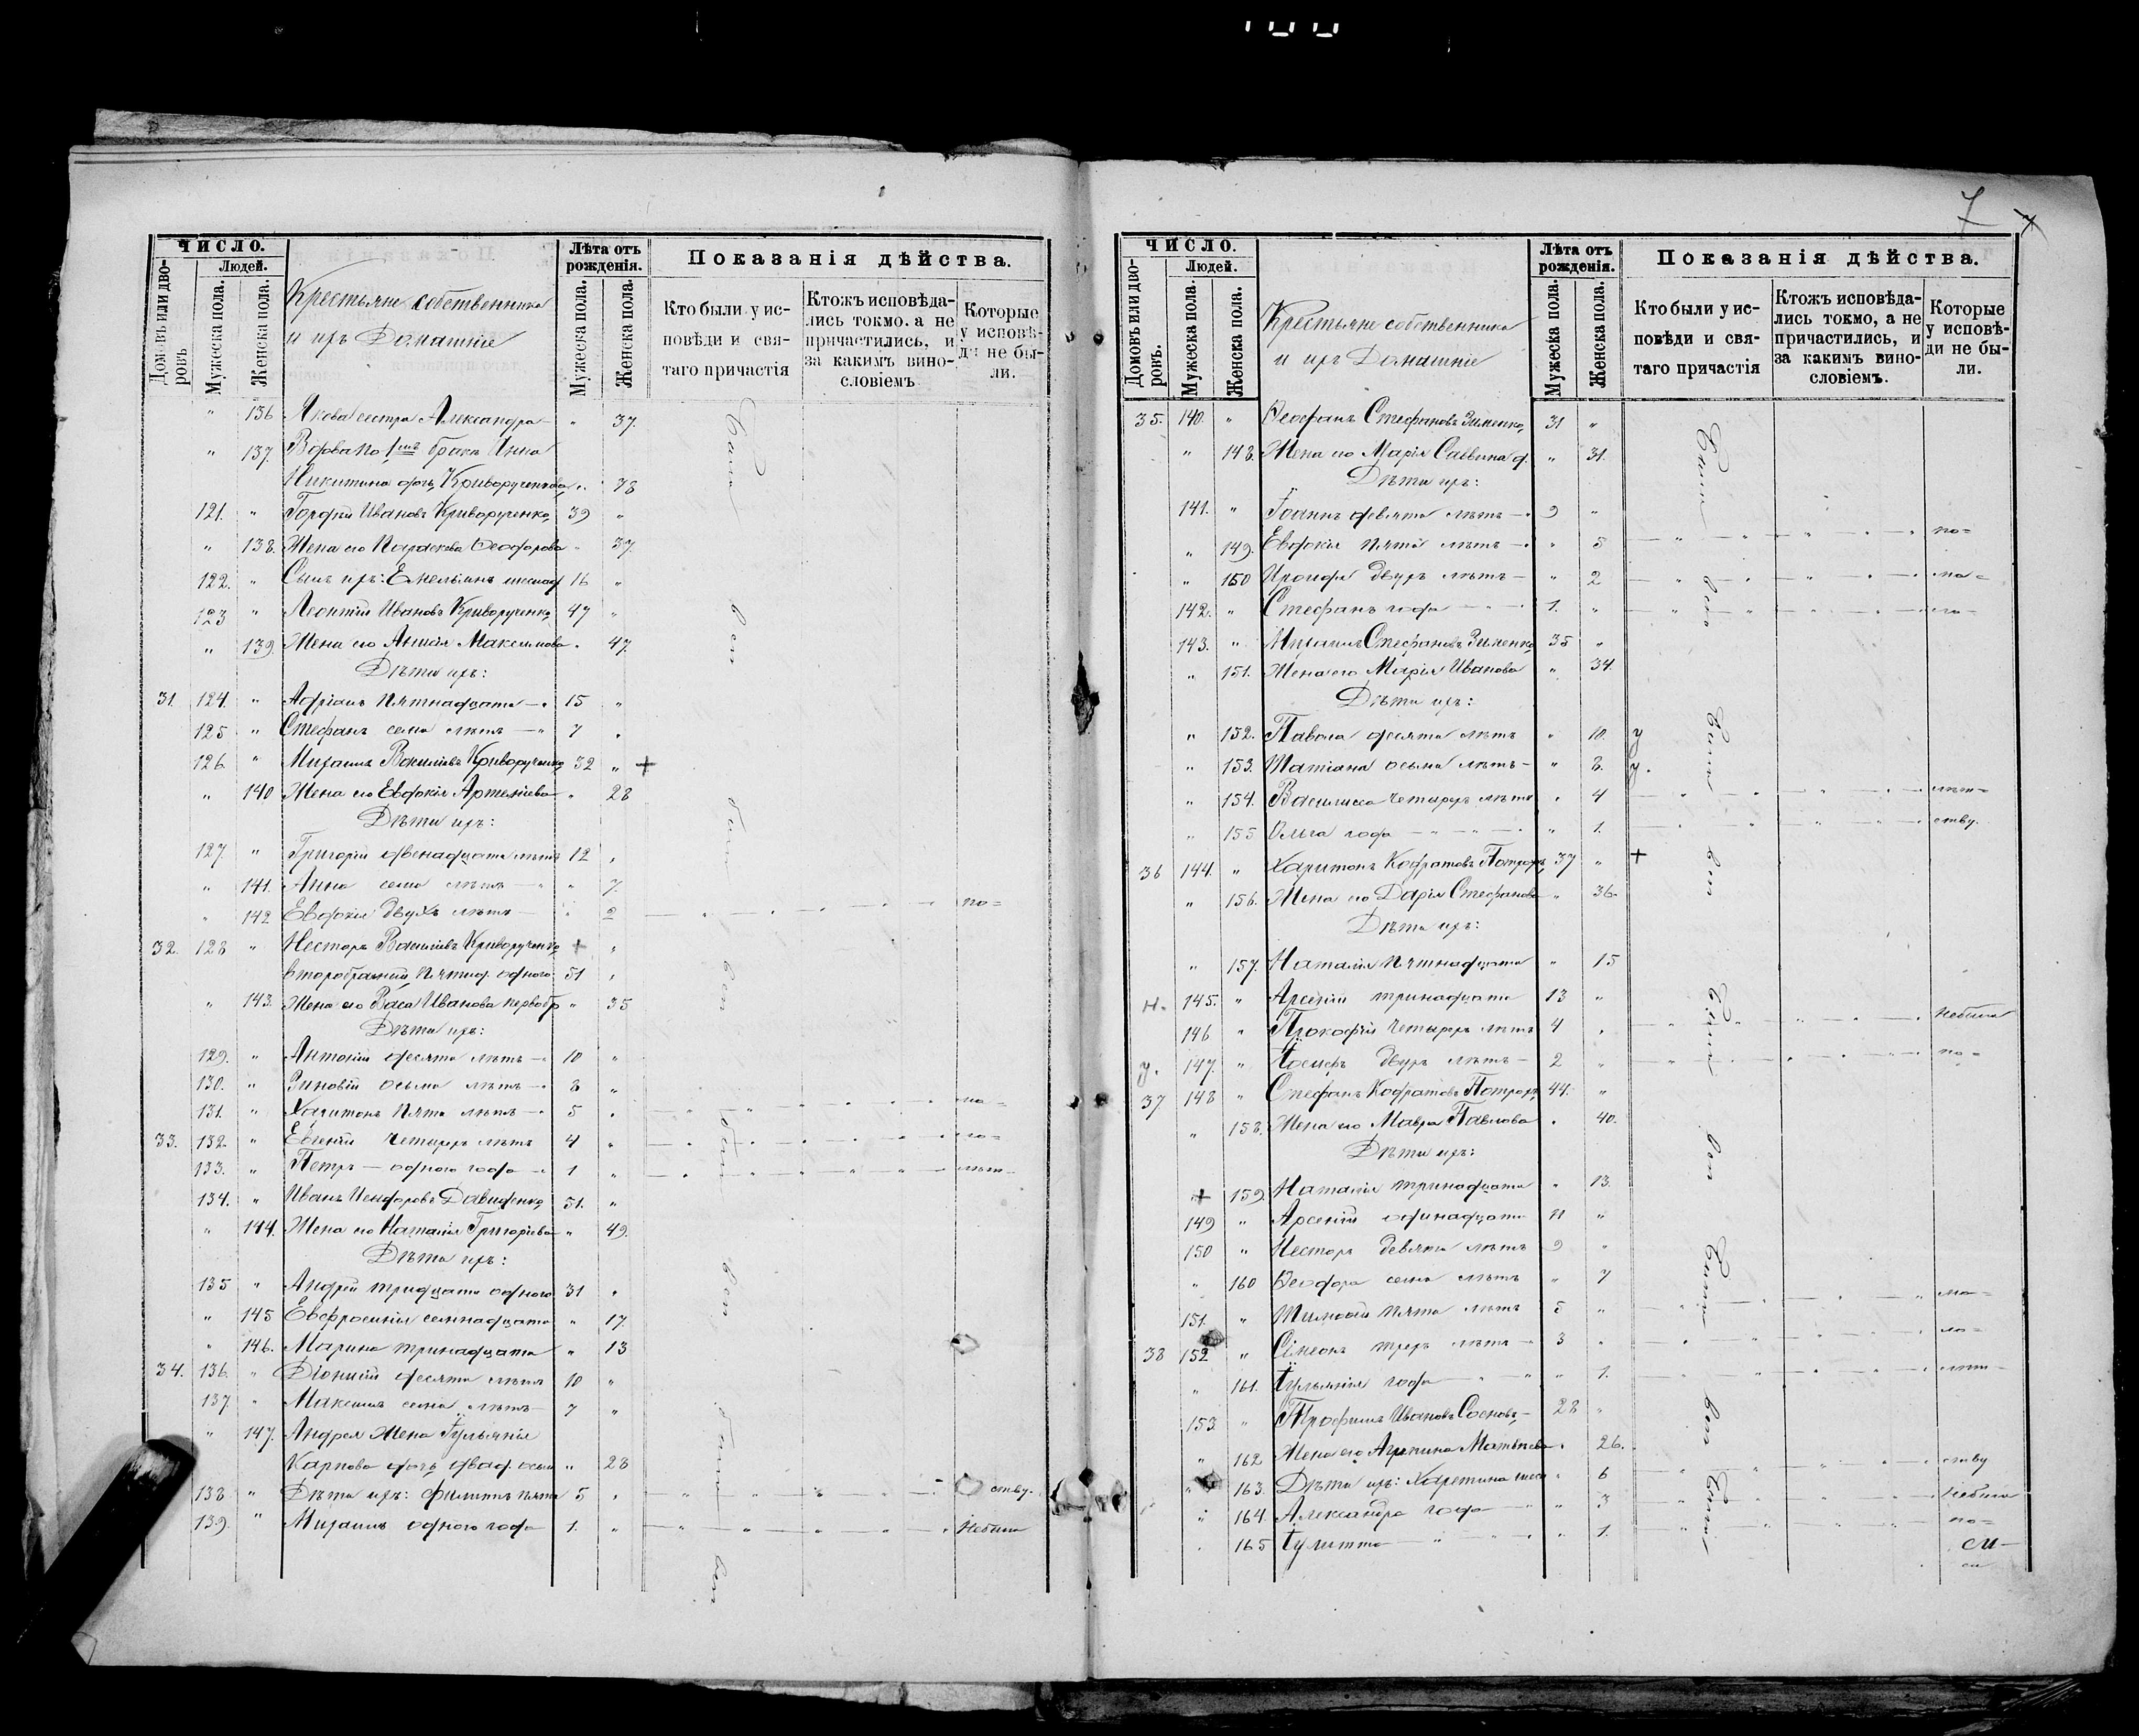 ЧИСЛО.
Домовъ или дворовъ
Людей.
Мужеска пола.
Женска пола.
Крестьяне собственники
и ихъ Домашніе
Лѣта отъ рожденія.
Мужеска пола.
Женска пола.
Показанія дѣйства.
Кто были у исповѣди и святаго причастія
Ктожъ исповѣдались токмо, а не причастились, и за какимъ винословіемъ
Которые у исповѣди не были.
" 136 Якова сестра Александра " 37.
" 137. Вдова по 1му браку Анна
Никитина дочь Криворученкова " 78
121. " Гордѣй Ивановъ Криворученко 39 "
" 138. Жена его Параскева Феодорова " 37.
122. " Сынъ ихъ: Емельянъ шеснад 16 "
123 " Леонтій Ивановъ Криворученко 47 "
" 139. Жена его Анисія Максимова " 47.
Дѣти ихъ:
31. 124. " Адріанъ пятнадцати 15 "
125 " Стефанъ семи лѣтъ 7 "
126 " Михаилъ Васильевъ Криворученко 32 " +
" 140 Жена его Евдокія Артеміева " 28
Дѣти ихъ:
127. " Григорій двенадцати лѣтъ 12 "
" 141. Анна семи лѣтъ " 7.
" 142 Евдокія двухъ лѣтъ " 2 по=
32. 128 " Несторъ Васильевъ Криворученко + "
второбрачный, пятид. одного 51 "
" 143. Жена его Васса Иванова первобр " 35
Дѣти ихъ:
129. " Антоній десяти лѣтъ 10 "
130. " Зиновій осьми лѣтъ 8 "
131. " Харитонъ пяти лѣтъ 5 " ма=
33. 132 " Евгеній четырехъ лѣтъ 4 " ло=
133. " Петръ одного года 1 " лѣт=
134. " Иванъ Никифоровъ Давиденко 51. "
" 144. Жена его Наталія Григоріева " 49.
Дѣти ихъ:
135 " Андрей тридцати одного 31 "
" 145 Евфросинія семнадцати " 17.
" 146. Марина тринадцати " 13
34. 136. " Діонисій десяти лѣтъ 10 "
137 " Максимъ семи лѣтъ 7 "
" 147. Андрея жена Іульянія
Карпова дочь двад. осьм " 28
138 " Дѣти ихъ: Филиппъ пяти 5 " ству.
139. " Михаилъ одного года 1. " Небыли
Были вси Были вси Были вси Были вси
7
ЧИСЛО.
Домовъ или дворовъ.
Людей.
Мужеска пола.
Женска пола.
Крестьяне собственники
и ихъ Домашніе
Лѣта отъ рожденія.
Мужеска пола.
Женска пола.
Показанія дѣйства.
Кто были у исповѣди и святаго причастія
Ктожъ исповѣдались токмо, а не причастились, и за какимъ винословіемъ.
Которые у исповѣди не были.
35. 140. " Феофанъ Стефановъ Зименко 31 "
" 148. Жена его Марія Саввина д. " 31.
Дѣти ихъ:
141. " Іоаннъ девяти лѣтъ 9 "
" 149. Евдокія пяти лѣтъ " 5 по=
" 150 Ироида двухъ лѣтъ " 2 ма=
142. " Стефанъ года 1. " ло=
143. " Михаилъ Стефановъ Зименко 35 "
" 151. Жена его Марія Иванова " 34.
Дѣти ихъ:
" 152. Павла десяти лѣтъ " 10. у
" 153. Татіана осьми лѣтъ " 8. у.
" 154. Василисса четырехъ лѣтъ " 4 лѣт=
" 155 Ольга года " 1. ству.
36 144. " Харитонъ Кодратовъ Потрохъ 37 " +
" 156. Жена его Дарія Стефанова " 36.
Дѣти ихъ:
" 157. Наталія пятнадцати " 15
н. 145. " Арсеній тринадцати 13 "
146 " Прокофій четырехъ лѣтъ 4 " Небыли
у. 147. " Іосифъ двухъ лѣтъ 2 " по=
37 148 " Стефанъ Кодратовъ Потрохъ 44. "
" 158. Жена его Мавра Павлова " 40.
Дѣти ихъ:
+ 159. Наталія тринадцати " 13.
149 " Арсеній одинадцати 11 "
150 " Несторъ девяти лѣтъ 9 "
" 160 Феодора семи лѣтъ " 7
151. " Тимофей пяти лѣтъ 5 " ма=
38 152 " Симеонъ трехъ лѣтъ 3 " ло=
" 161. Іульянія года " 1. лѣт=
153 " Трофимъ Ивановъ Сосновъ 28 "
" 162 Жена его Агрипина Матвѣева " 26.
" 163. Дѣти ихъ: Харитина шести " 6 ству
" 164. Александра года " 3 Небыли
" 165 Іулитта " 1. по=
Были вси Были вси Были вси Были вси Были